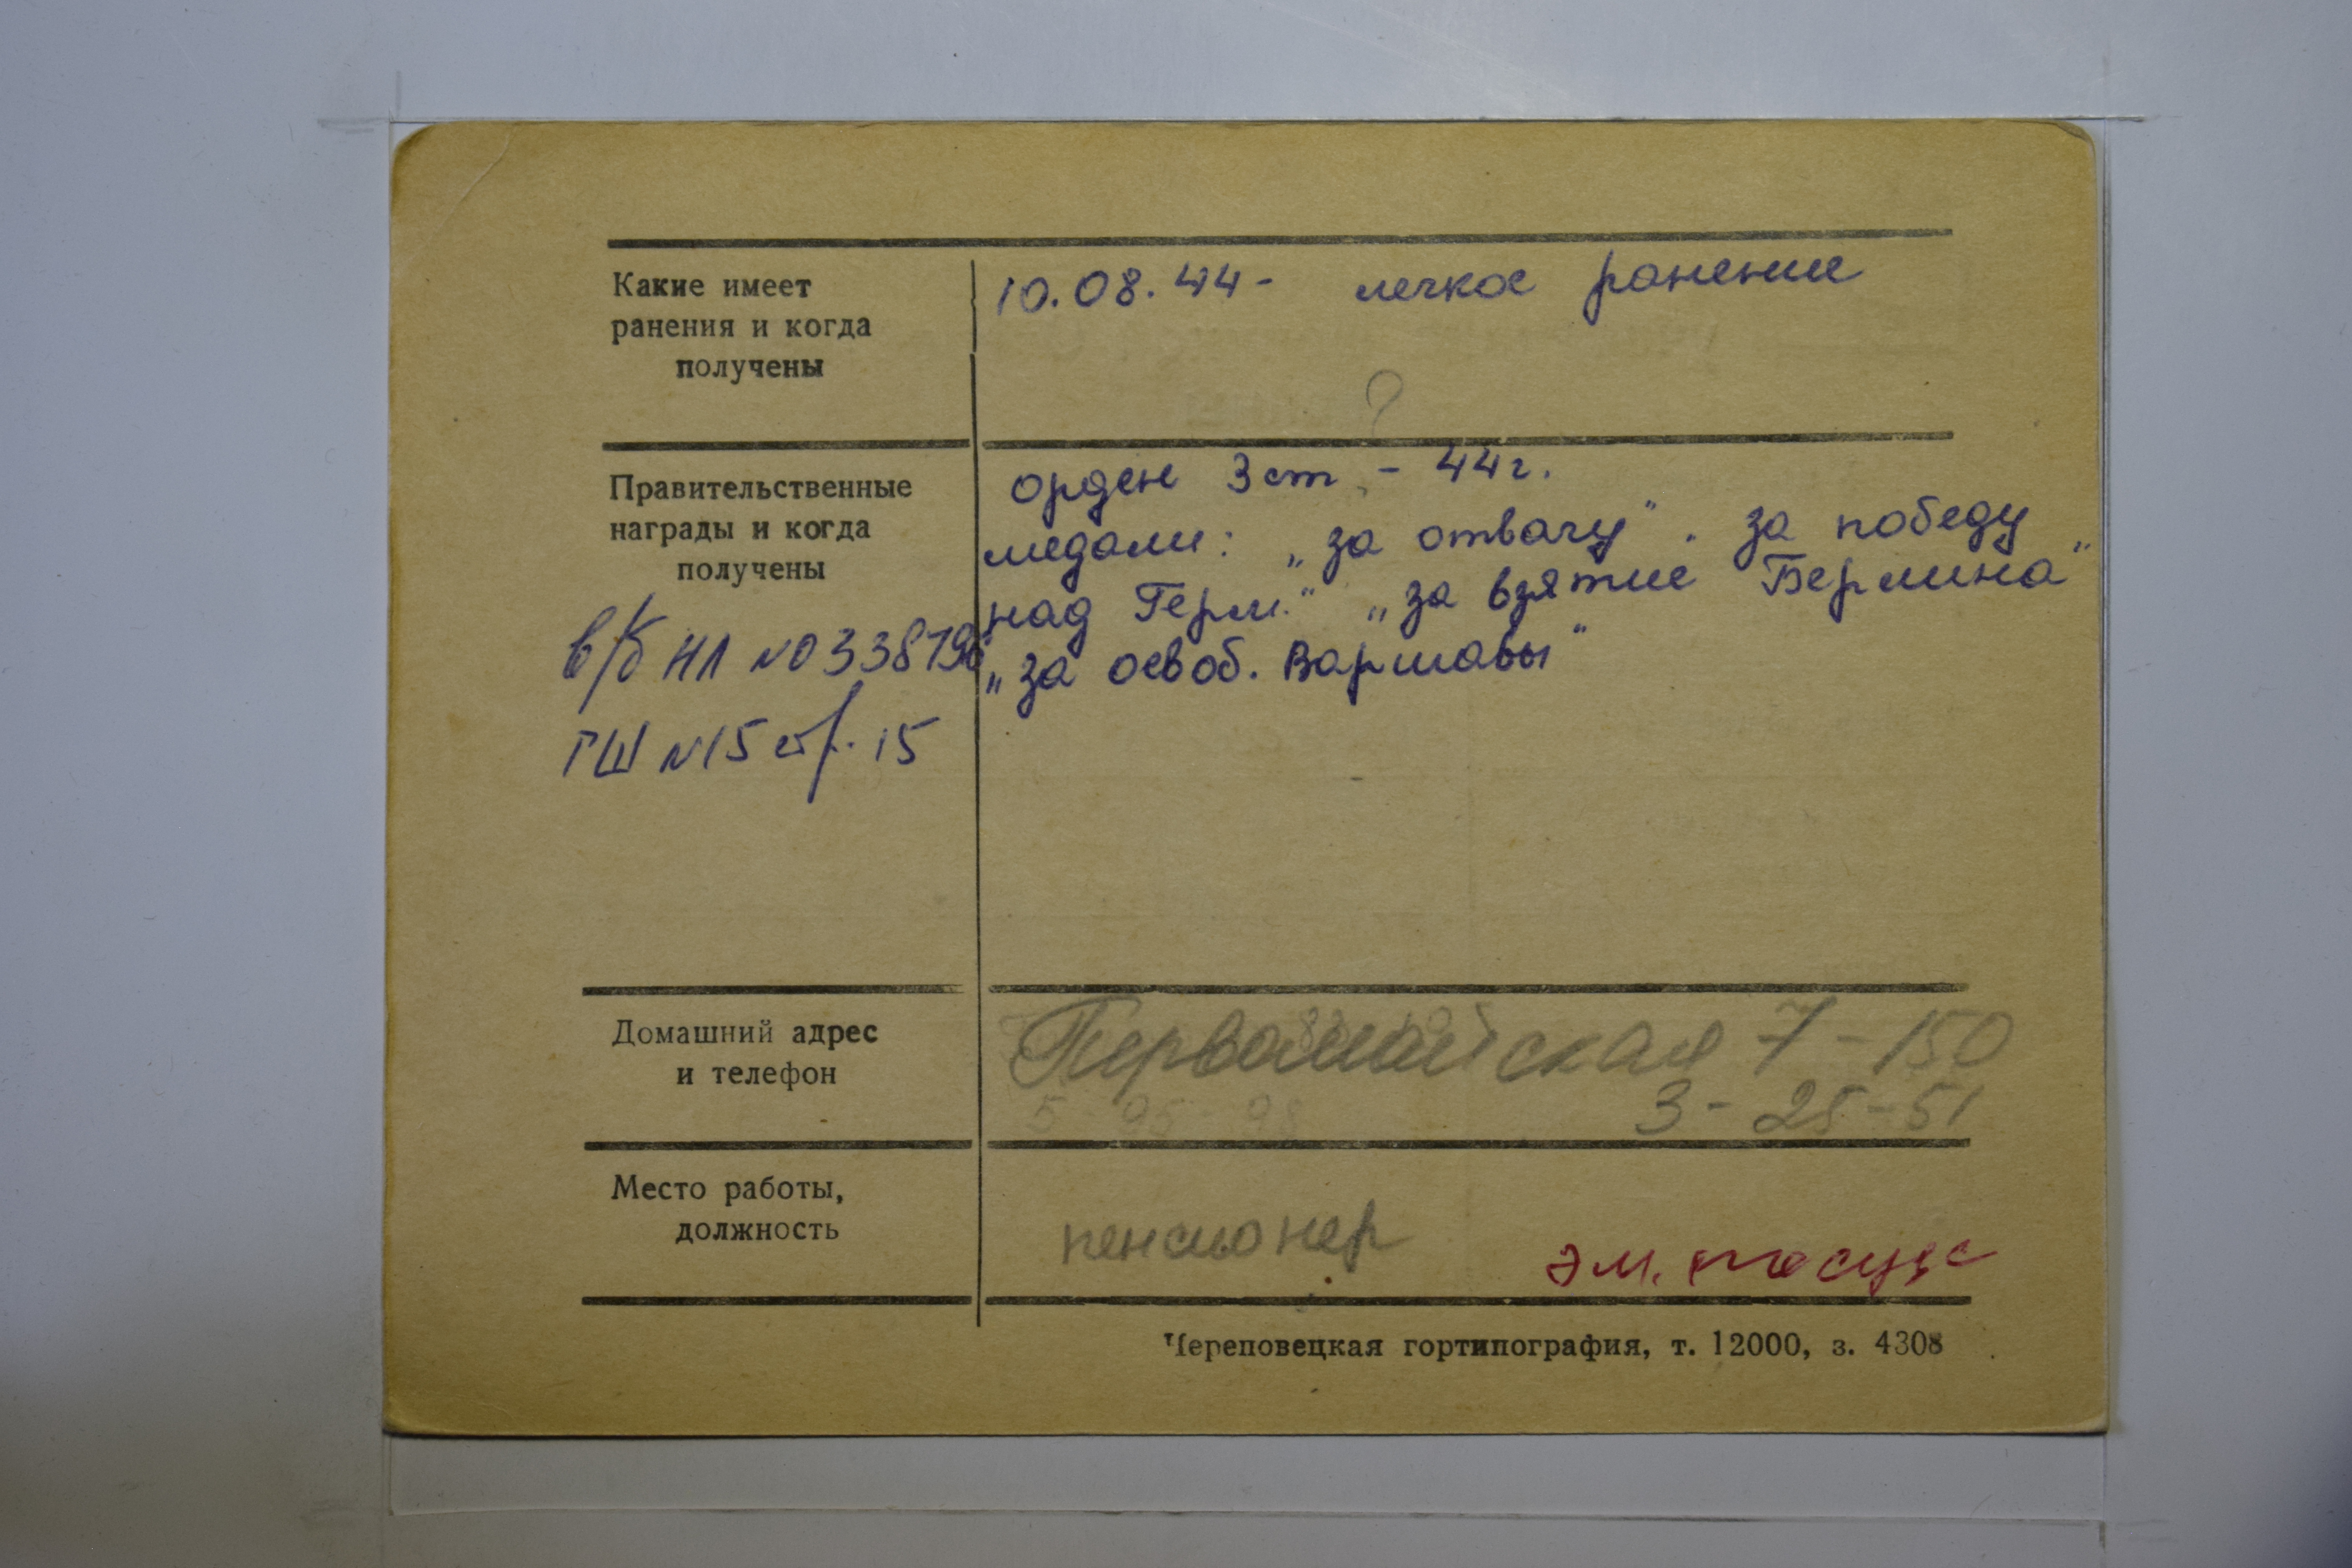 Какие имеет
ранения и когда
получены
10.08.44- легкое ранение
?
Правительственные
награды и когда
получены
орден 3 ст - 44 г.
медали: „за отвагу". за победу
над Герм." „за взятие Берлина"
„за освоб. Варшавы"
в/б НЛ №0338796
ГШ №15 стр. 15
Домашний адрес
и телефон
Первомайская 7-150
5-95-98 3-25-51
Место работы,
должность
пенсионер
эм.
Череповецкая гортипография, т. 12000, з. 4308